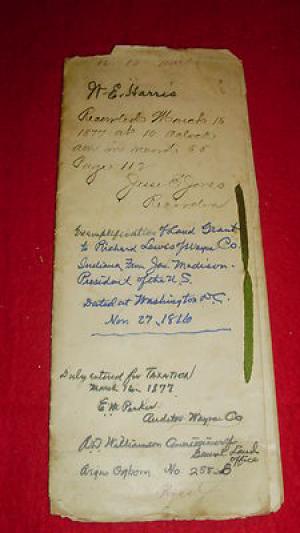 W. E. Harris
Recorded March 15
1877 at 10 oclock
am in record 55
Page 112
Jesse E Jones
Recorder
Exemplification of Land Grant
to Richard Lewis of Wayne Co.
Indiana From Jas. Madison.
President of the U.S.
Dated at Washington D.C.
Nov 27, 1816
Duly entered for TAXATION
March 16 - 1877
E. M. Parker
Auditor Wayne Co
Williamson Commissioner of
General Land
office
No 258